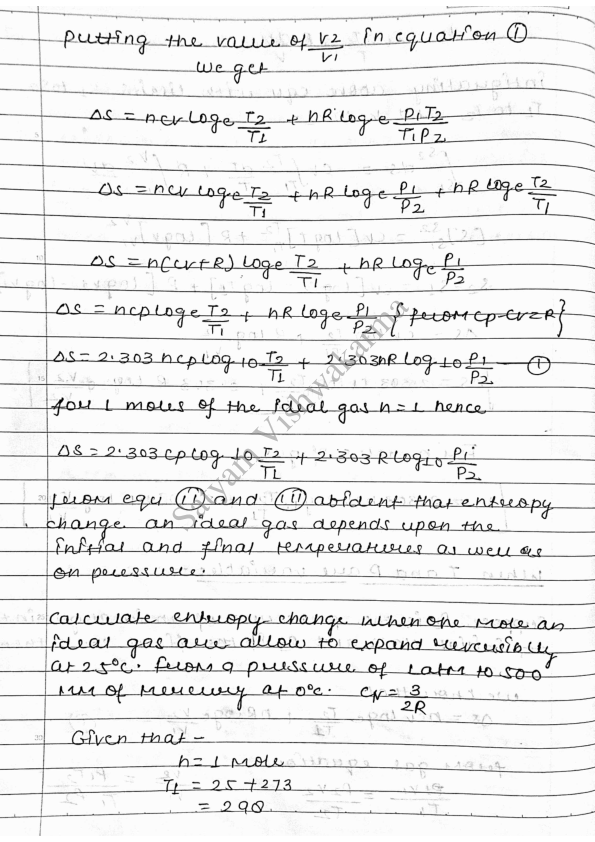 Putting the value of V2/V1 in equation ①
we get
ΔS = ncv loge T2/T1 + nR loge P1T2/T1P2
ΔS = ncv loge T2/T1 + nR loge P1/P2 + nR loge T2/T1
ΔS = n(cv+R) loge T2/T1 + nR loge P1/P2
ΔS = ncp loge T2/T1 + nR loge P1/P2 {from cp-cv=R}
ΔS = 2.303 ncp log 10 T2/T1 + 2.303nR log 10 P1/P2 — ①
for 1 moles of the ideal gas n=1 hence
ΔS = 2.303 cp log 10 T2/T1 + 2.303 R log 10 P1/P2
from equ (ii) and (iii) abident that entropy
change an ideal gas depends upon the
initial and final temperatures as well as
on pressure.
calculate entropy change when one mole an
ideal gas are allow to expand reversibly
at 25°c. from a pressure of 1 atm to 500
mm of mercury at 0°c. cv = 3/2R
Given that -
n = 1 mole
T1 = 25 + 273
= 298
Satyam Vishwakarma